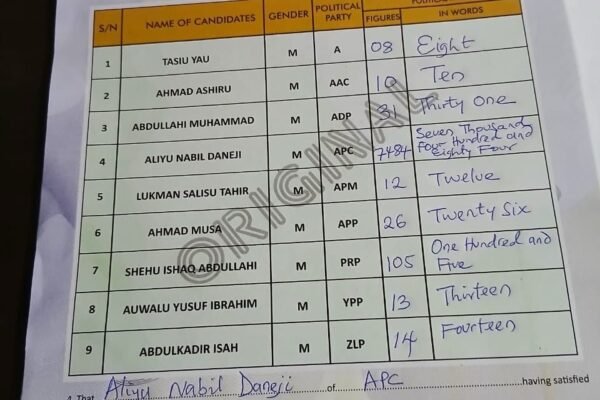 S/N NAME OF CANDIDATES GENDER POLITICAL PARTY FIGURES IN WORDS
1 TASIU YAU M A 08 Eight
2 AHMAD ASHIRU M AAC 10 Ten
3 ABDULLAHI MUHAMMAD M ADP 31 Thirty One
4 ALIYU NABIL DANEJI M APC 7484 Seven Thousand Four Hundred and Eighty Four
5 LUKMAN SALISU TAHIR M APM 12 Twelve
6 AHMAD MUSA M APP 26 Twenty Six
7 SHEHU ISHAQ ABDULLAHI M PRP 105 One Hundred and Five
8 AUWALU YUSUF IBRAHIM M YPP 13 Thirteen
9 ABDULKADIR ISAH M ZLP 14 Fourteen
ORIGINAL
4. That Aliyu Nabil Daneji of APC having satisfied